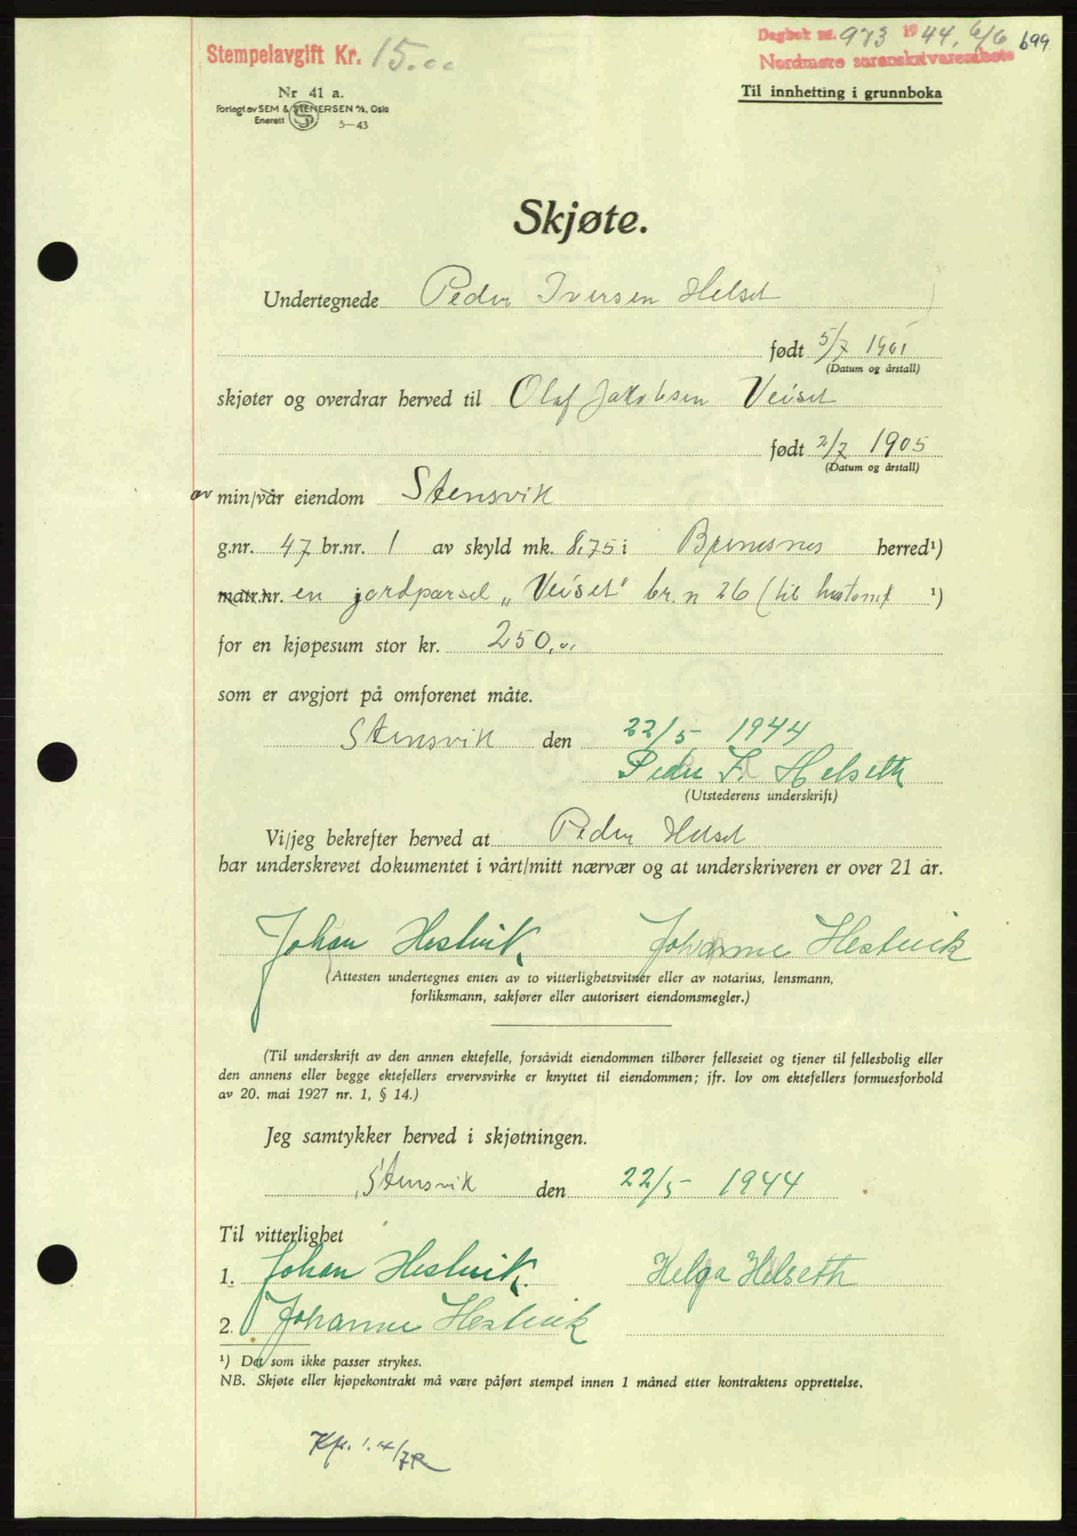 Stempelavgift Kr. 15.00
Dagbok nr. 973 1944, 6/6 699
Nordmøre sorenskriverembete
Nr 41 a.
Forlagt av SEM & STENERSEN A/S, Oslo
Enerett S 5—43
Til innhefting i grunnboka
Skjøte.
Undertegnede Peder Iversen Helset
født 5/7 1901
(Datum og årstall)
skjøter og overdrar herved til Olaf Jakobsen Veiset
født 2/7 1905
(Datum og årstall)
av min/vår eiendom Stensvik
g.nr. 47 br.nr. 1 av skyld mk. 8,75 i Bremsnes herred¹)
matr.nr. en jordparsel „Veiset" br.n 26 (til hustomt ¹)
for en kjøpesum stor kr. 250,00
som er avgjort på omforenet måte.
Stensvik den 22/5- 1944
Peder I. Helseth
(Utstederens underskrift)
Vi/jeg bekrefter herved at Peder Helset
har underskrevet dokumentet i vårt/mitt nærvær og at underskriveren er over 21 år.
Johan Hestvik. Johanne Hestvik
(Attesten undertegnes enten av to vitterlighetsvitner eller av notarius, lensmann,
forliksmann, sakfører eller autorisert eiendomsmegler.)
(Til underskrift av den annen ektefelle, forsåvidt eiendommen tilhører felleseiet og tjener til fellesbolig eller
den annens eller begge ektefellers ervervsvirke er knyttet til eiendommen; jfr. lov om ektefellers formuesforhold
av 20. mai 1927 nr. 1, § 14.)
Jeg samtykker herved i skjøtningen.
Stensvik den 22/5- 1944
Til vitterlighet
1. Johan Hestvik. Helga Helseth
2. Johanne Hestvik
¹) Det som ikke passer strykes.
NB. Skjøte eller kjøpekontrakt må være påført stempel innen 1 måned etter kontraktens opprettelse.